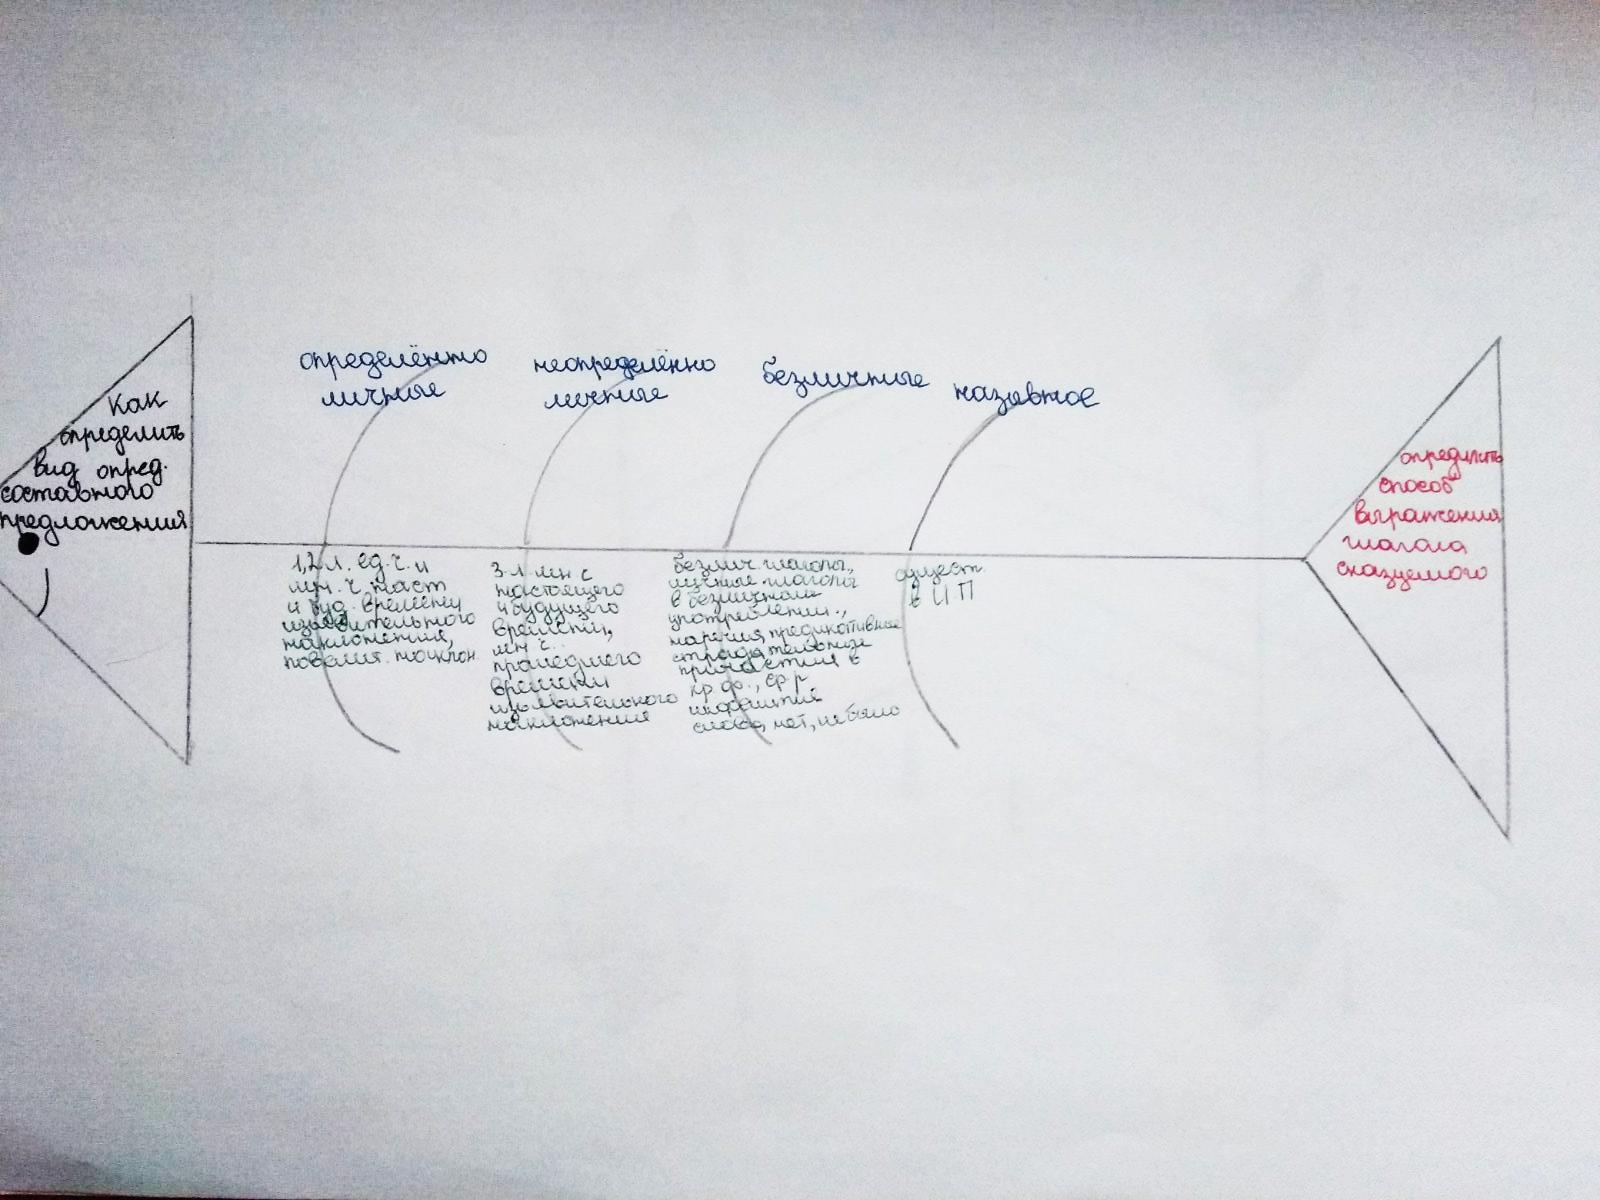 Как
определить
вид опред.
составного
предложения
определённо
личные
неопределённо
личные
безличные
назывное
1,2 л. ед. ч. и
мн. ч. наст
и буд. времени
изъявительного
наклонения,
повелит. наклон.
3 л. мн с
настоящего
и будущего
времени,
мн ч.
прошедшего
времени
изъявительного
наклонения
безлич. глаголы,
личные глаголы
в безличном
употреблении.,
наречия предикативные
страдательные
причастия в
кр. ф., ср р
инфинитив
слова, нет, не было
сущест.
в И П
определить
способ
выражения
глагола
сказуемого